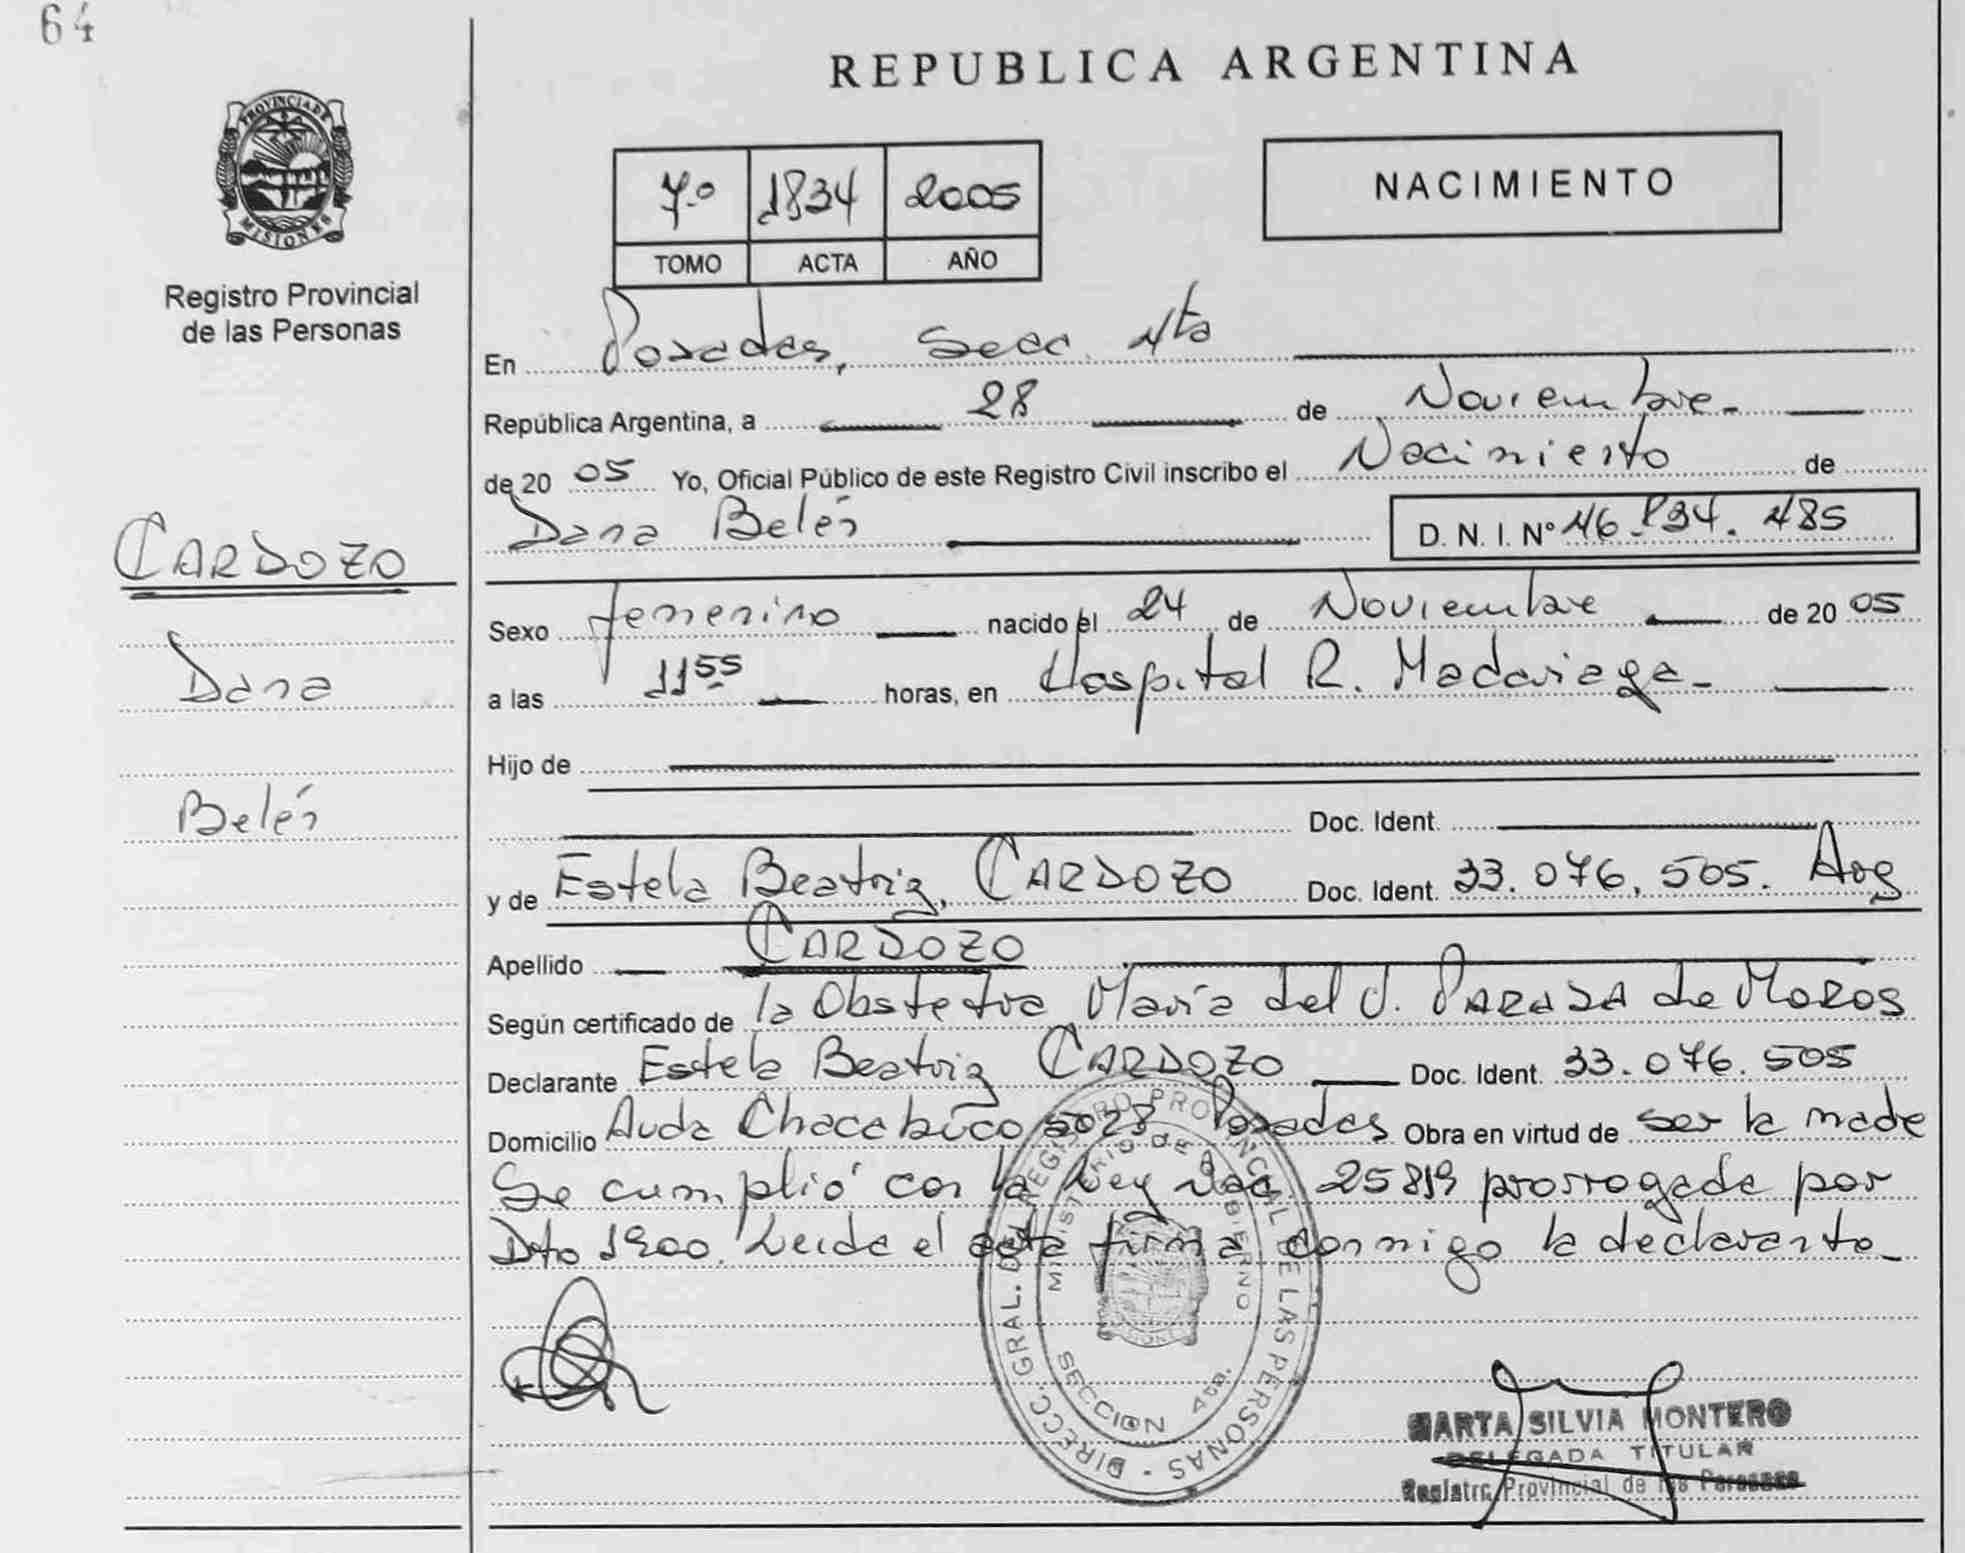 64
REPUBLICA ARGENTINA
PROVINCIA DE
MISIONES
Registro Provincial
de las Personas
7º 1834 2005
TOMO ACTA AÑO
NACIMIENTO
En Posadas, Secc. 4ta
República Argentina, a 28 de Noviembre.
de 20 05 Yo, Oficial Público de este Registro Civil inscribo el Nacimiento de
Dana Belén D. N. I. Nº 46.834.485
CARDOZO
Dana
Belén
Sexo femenino nacido el 24 de Noviembre de 20 05
a las 11 55 horas, en Hospital R. Madariaga.
Hijo de
Doc. Ident.
y de Estela Beatriz, CARDOZO Doc. Ident. 33.076.505. Arg
Apellido CARDOZO
Según certificado de la Obstetra María del J. PARADA de MOROS
Declarante Estela Beatriz CARDOZO Doc. Ident. 33.076.505
Domicilio Avda Chacabuco 5028 Posadas Obra en virtud de ser la madre
Se cumplió con la Ley Nac. 25819 prorrogada por
Dto 1900. Leida el acta firma conmigo la declarante
DIRECC. GRAL. DEL REGISTRO PROVINCIAL DE LAS PERSONAS
MINISTERIO DE GOBIERNO
SECCION 4ta.
MARTA SILVIA MONTERO
DELEGADA TITULAR
Registro Provincial de las Personas